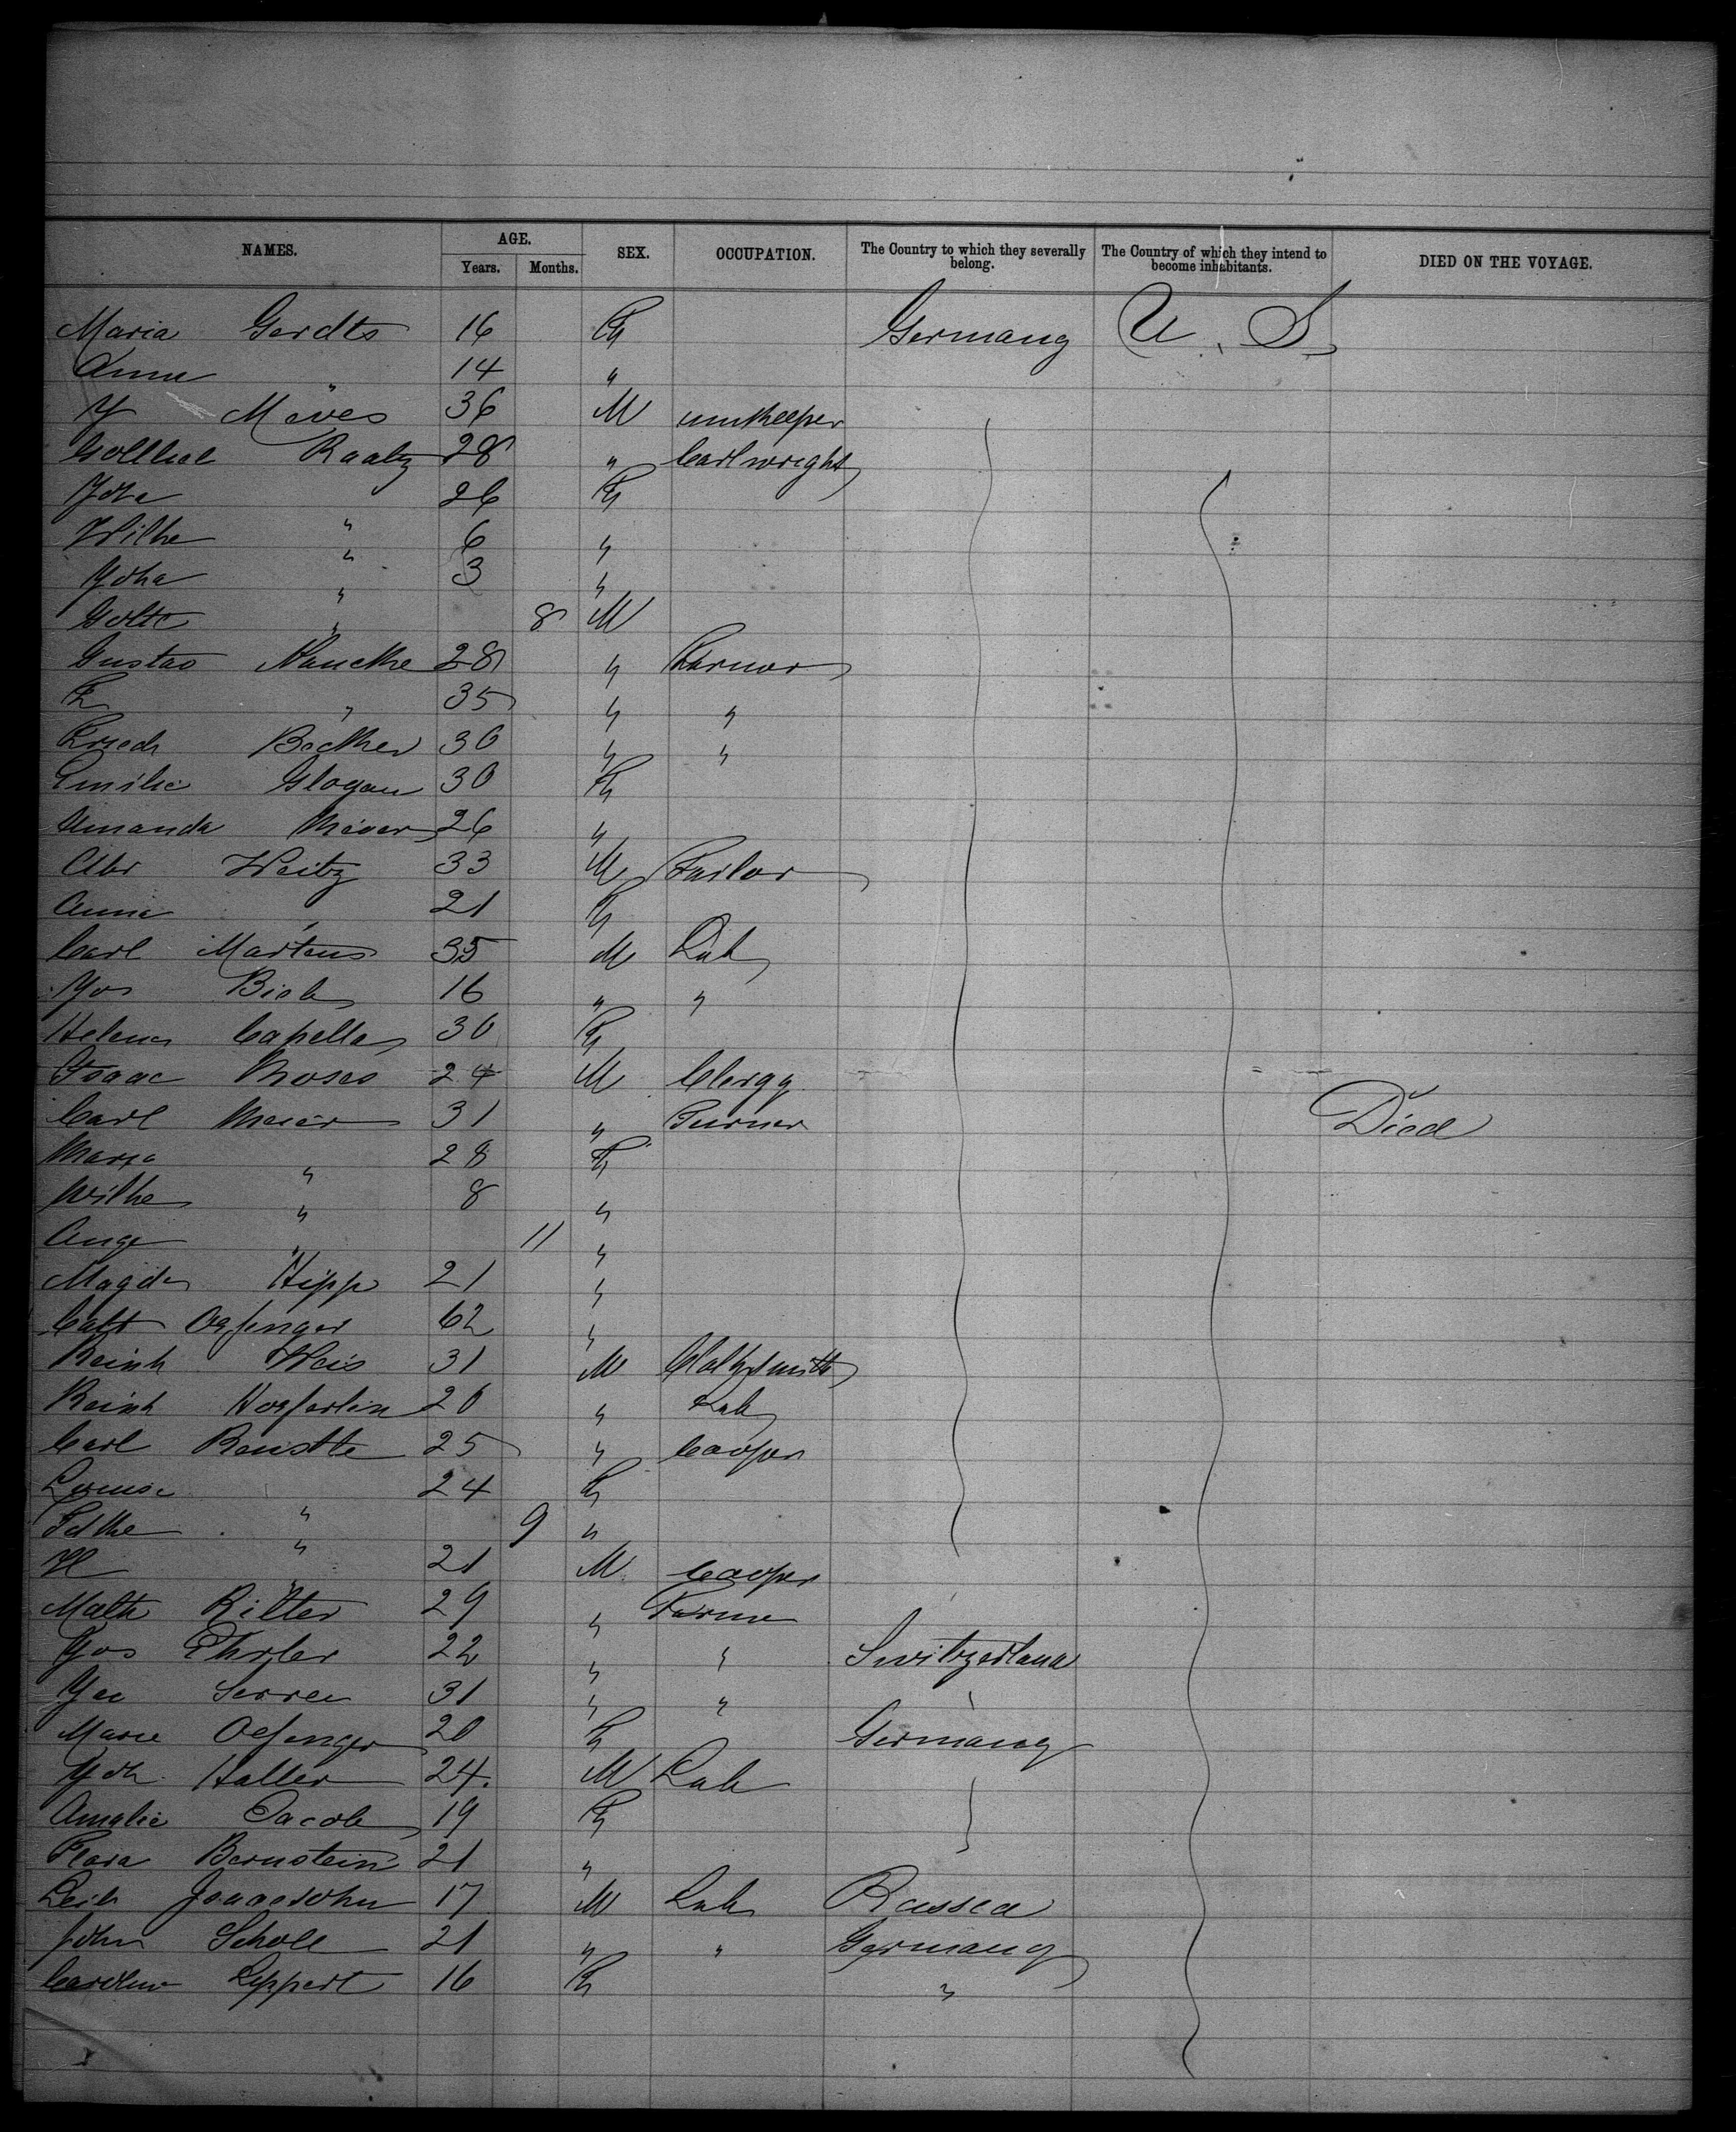 NAMES. AGE. Years. Months. SEX. OCCUPATION. The Country to which they severally belong. The Country of which they intend to become inhabitants. DIED ON THE VOYAGE.
Maria Gerdts 16 F Germany U. S.
Anna " 14 "
J Meves 36 M innkeeper
Raatz 28 " Cartwright
Joha " 26 F
Wilhe " 6 "
Joha " 3 "
Gottl " 8 M
Gustav Nauchke 28 " Farmer
F " 35 " "
Friedr Becker 30 " "
Emilie Glogau 30 F
Amanda Meier 26 "
Abr Weitz 33 M Tailor
Anna " 21 F
Carl Martens 35 M Lab
Jos 16 " "
Helena Capella 30 F
Isaac Moses 24 M Clergy
Carl Meier 31 " Turner Died
Maria " 28 F
Wilhe " 8 "
Auge " 11 "
Magda Hipp 21 "
Cath Oefinger 62 "
Reinh Weis 31 M
Reinh 20 " Lab
Carl 25 " Cooper
Louise " 24 F
" 9 "
H " 21 M Cooper
Math Ritter 29 " Farmer
Jos Ehrler 22 " " Switzerland
Jac 31 " " "
Marie Oefinger 20 F Germany
Joh Haller 24 M Lab
Amalie Jacob 19 F
Flora Bernstein 21 "
Leib Isaacsohn 17 M Lab Russia
John Scholl 21 " " Germany
Caroline Leppert 16 F "